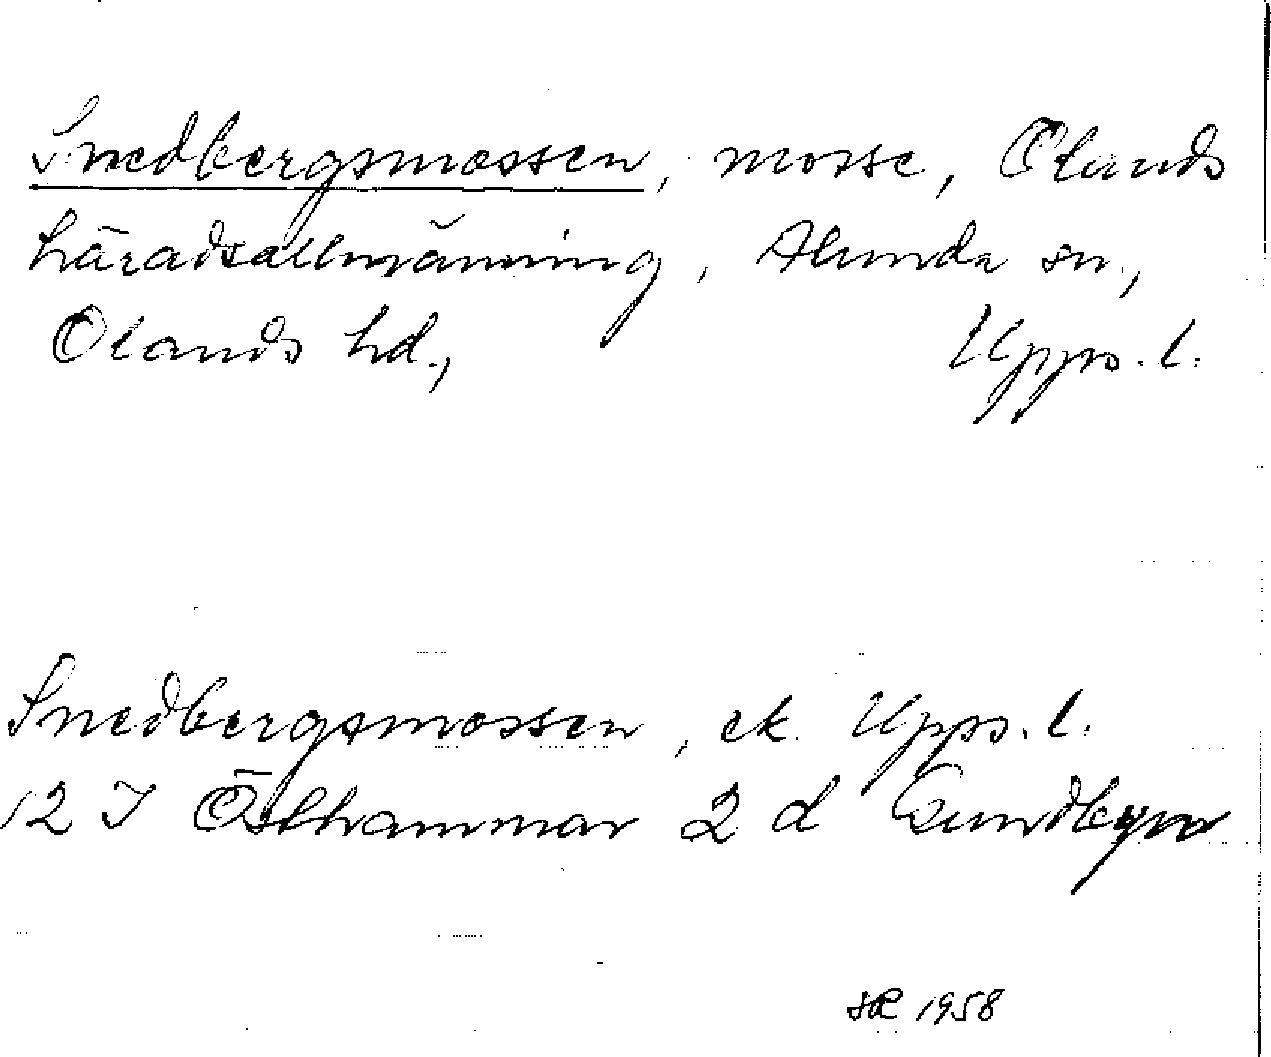 Snedbergsmossen, mosse, Ölands
häradsallmänning, Alunda sn.,
Olands hd., Upps. l.
Snedbergsmossen, ek. Upps. l.
12 I Östhammar 2 d Sundbyn
1958